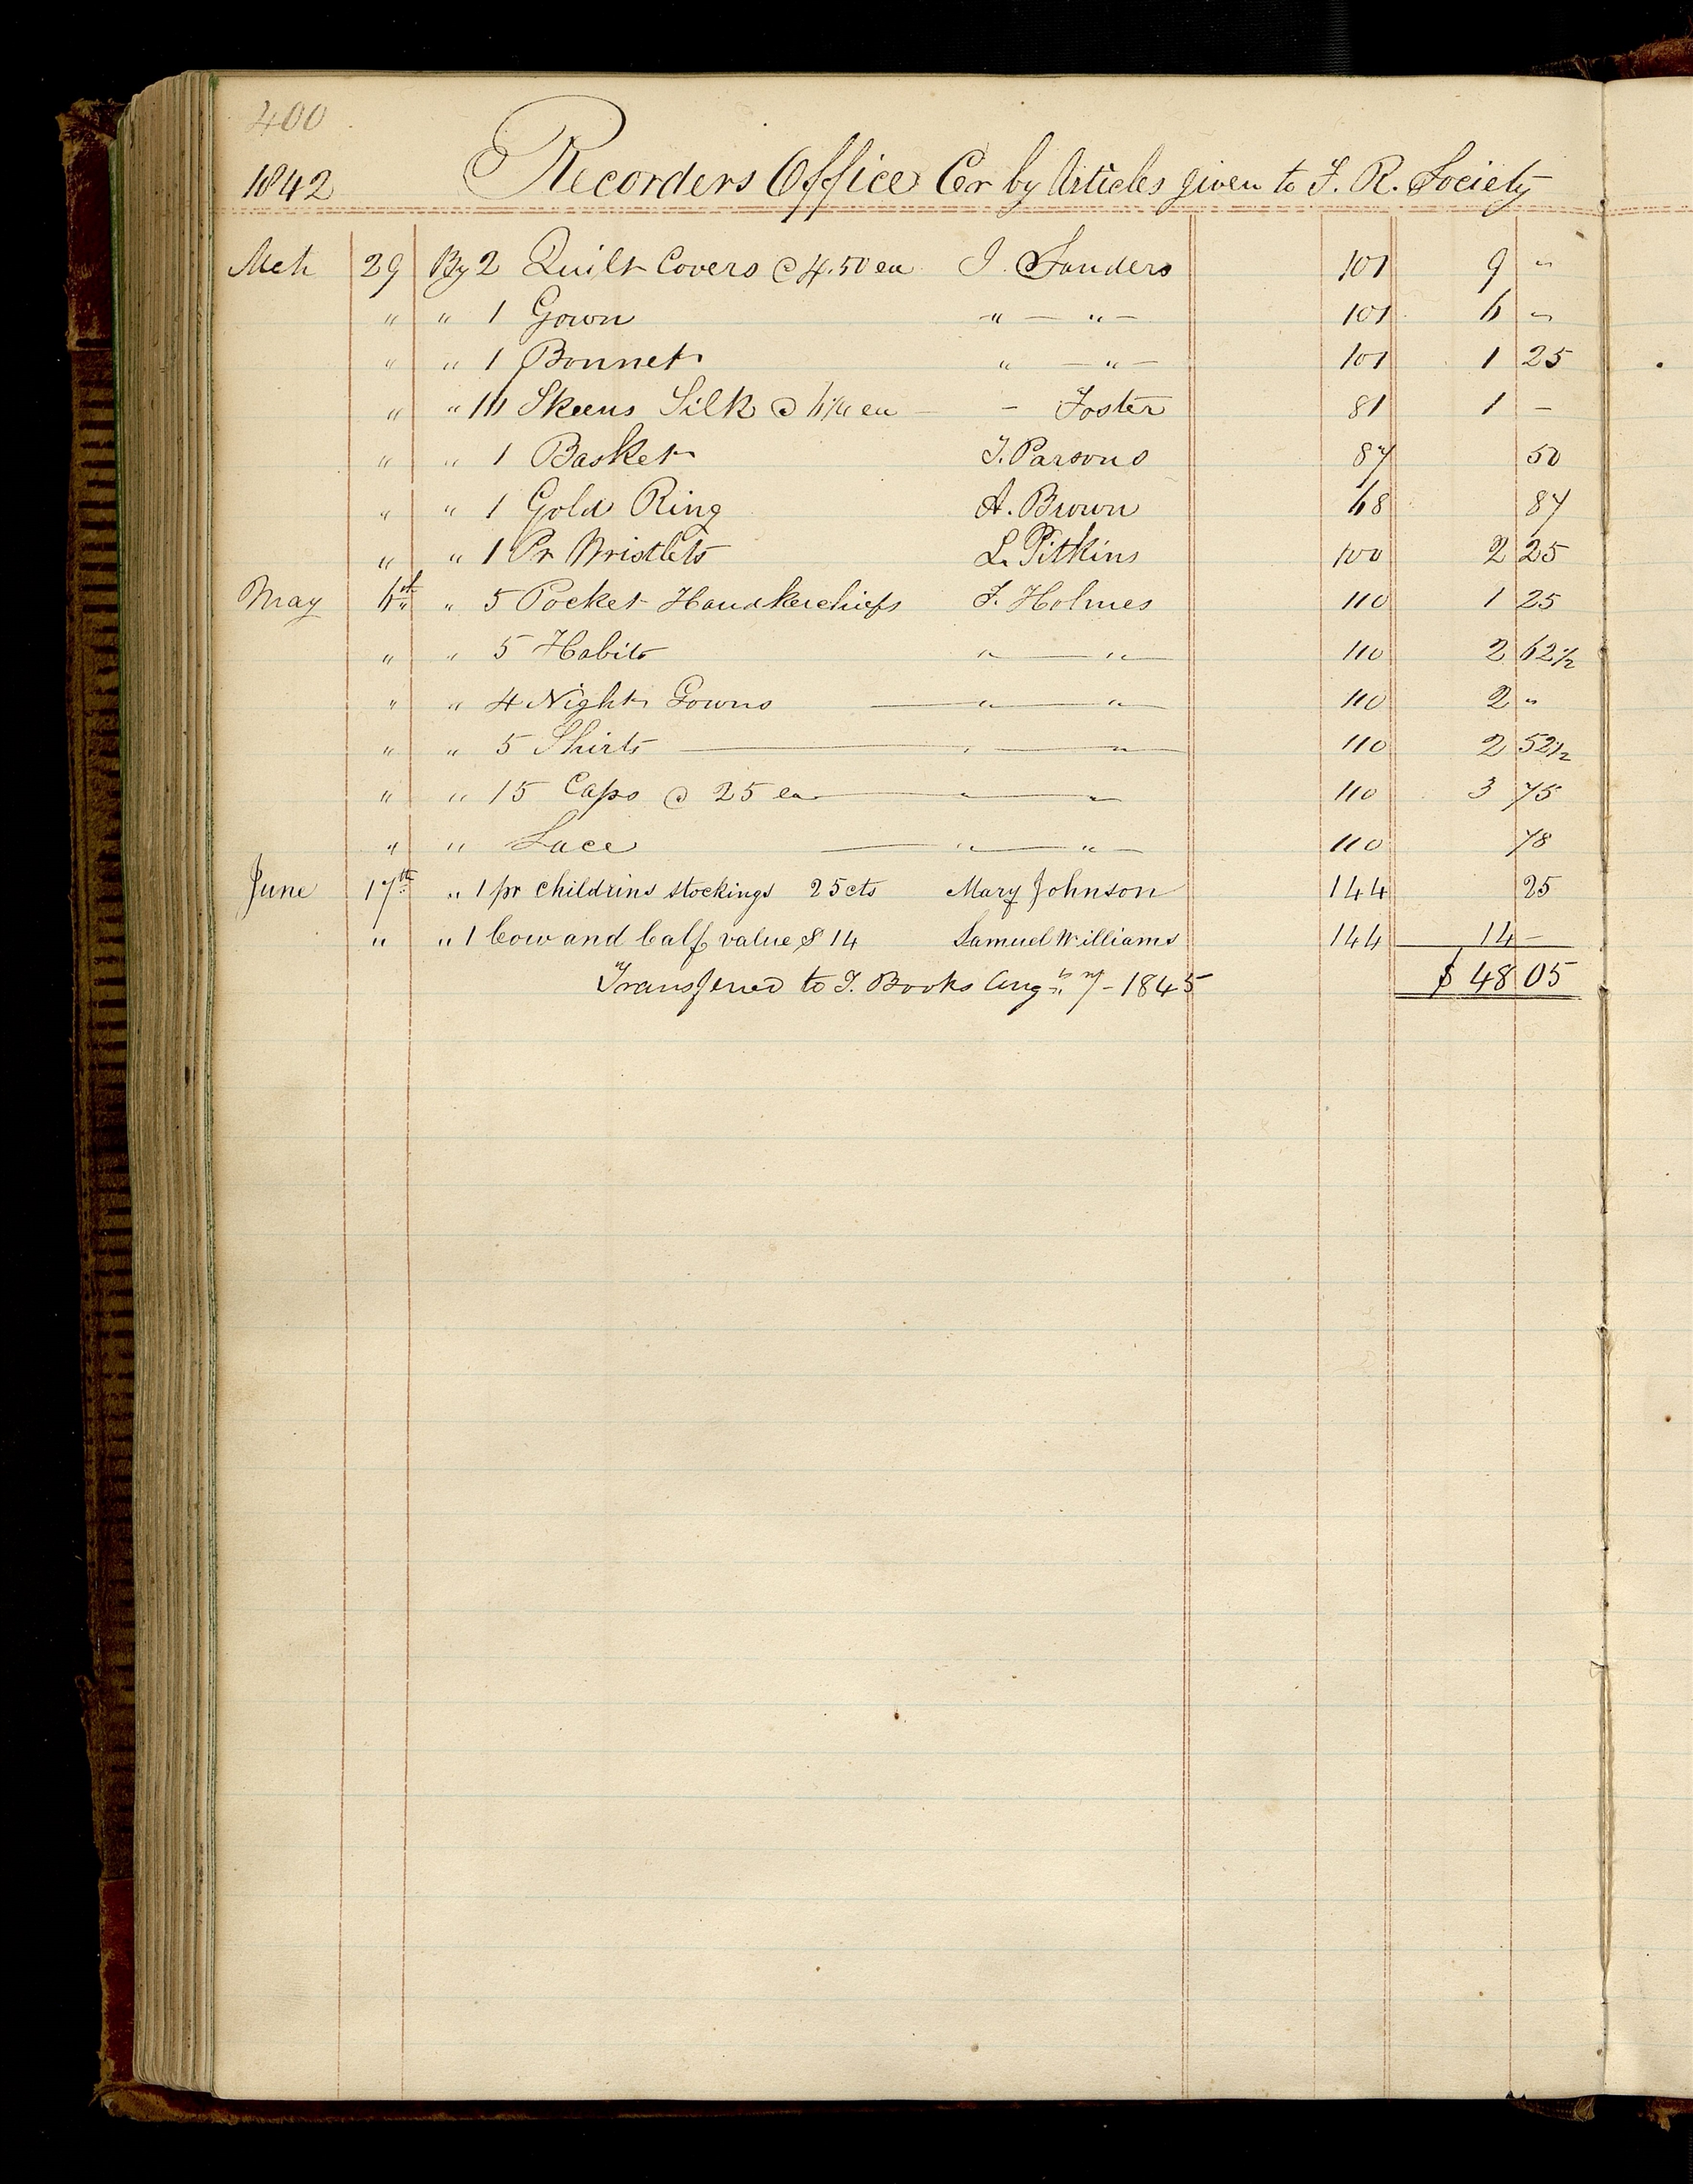 400
1842 Recorders Office Cr by Articles given to F. R. Society
Mch 29 By 2 Quilt Covers @ 4.50 ea J. Sanders 101 9 "
" " 1 Gown " — " — 101 6 "
" " 1 Bonnet " — " — 101 1 25
" " 16 Skeens Silk @ 6¼ ea — – Foster 81 1 –
" " 1 Basket T. Parsons 87 50
" " 1 Gold Ring A. Brown 68 87
" " 1 Pr Wristlets L. Pitkins 100 2 25
May 6th " 5 Pocket Handkerchiefs J. Holmes 110 1 25
" " 5 Habits " — " — 110 2 62½
" " 4 Night Gowns — " — " — 110 2 "
" " 5 Shirts — " — " — 110 2 52½
" " 15 Caps @ 25 ea — " — " 110 3 75
" " Lace — " — " — 110 78
June 17th " 1 pr childrins stockings 25 cts Mary Johnson 144 25
" " 1 Cow and Calf value $ 14 Samuel Williams 144 14 –
Transfered to T. Books Aug 7 – 1845 $ 48 05